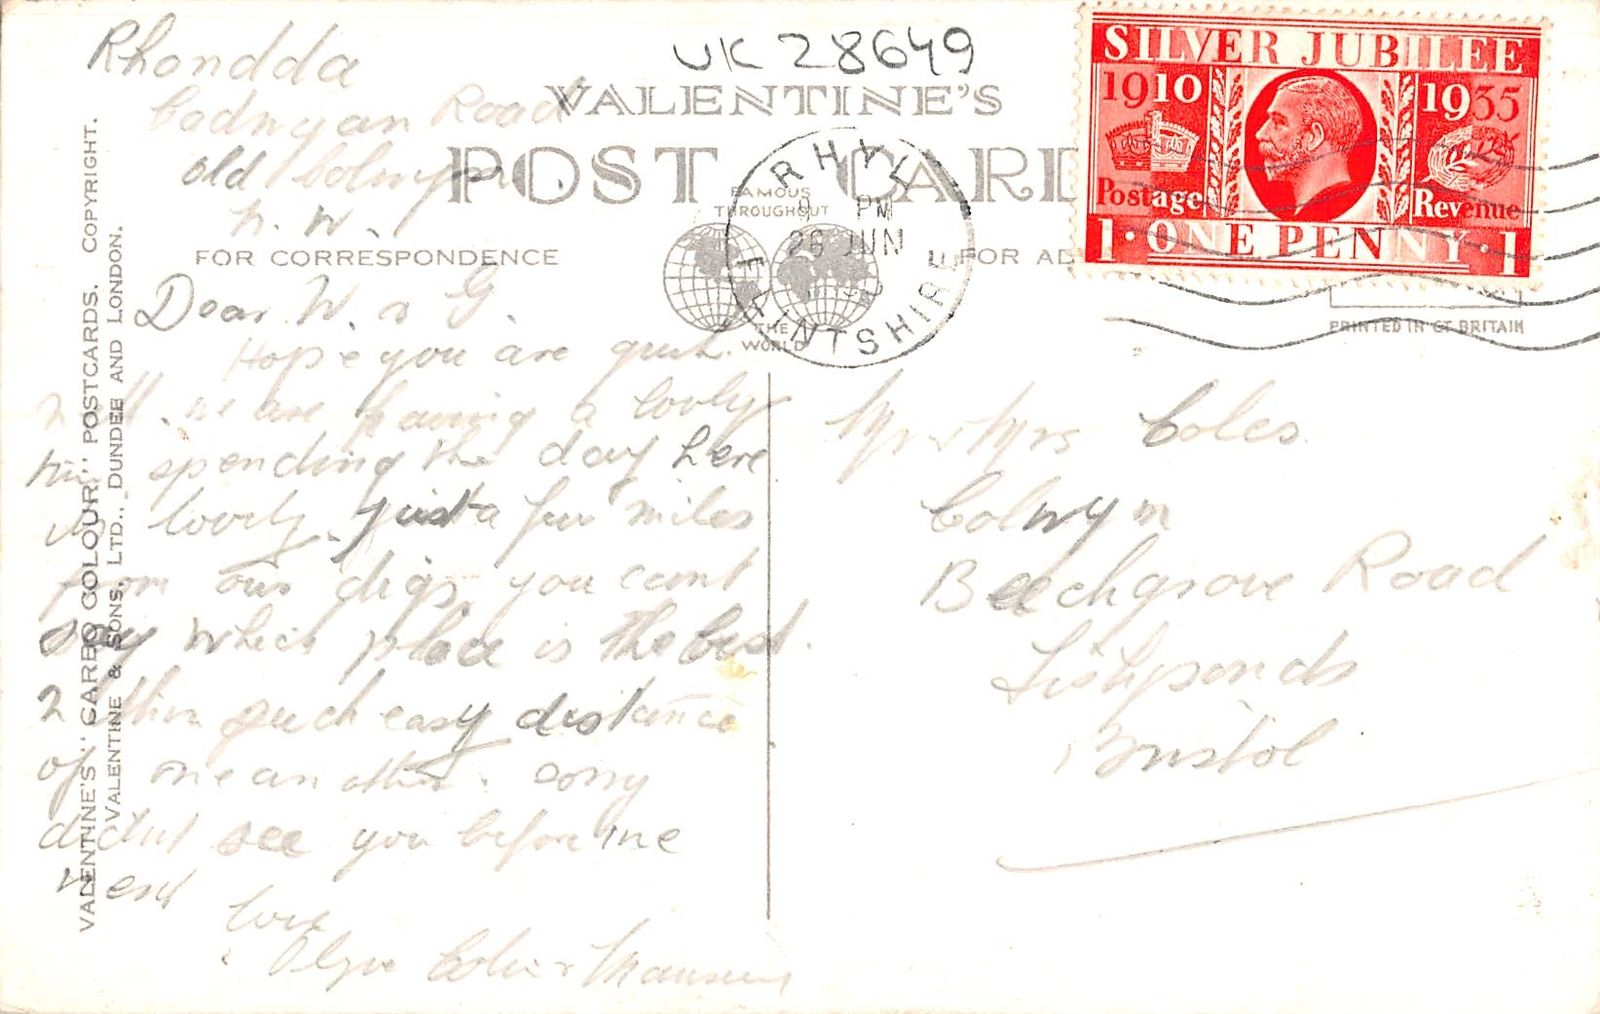 Rhondda
Cadnyan Road
old Colwyn
N. W.
UK 28649
VALENTINE'S
POST CARD
FAMOUS
THROUGHOUT
THE
WORLD
FOR CORRESPONDENCE
FOR AD
SILVER JUBILEE
1910 1935
Postage Revenue
1 · ONE PENNY · 1
RHYL
PM
26 JUN
FLINTSHIRE
PRINTED IN GT BRITAIN
VALENTINE'S "CARBO COLOUR" POSTCARDS. COPYRIGHT.
VALENTINE & SONS, LTD., DUNDEE AND LONDON.
Dear W. & G.
Hope you are quite
well. we are having a lovely
time spending the day here
its lovely. just a few miles
from our digs, you cant
say which place is the best
within such easy distance
of one another. sorry
didnt see you before we
went
love
Coles &
Mr & Mrs Coles
Colwyn
Beechgrove Road
Fishponds
Bristol